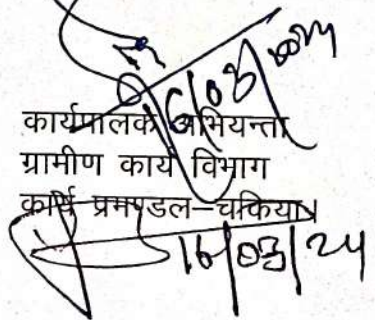 16/03/2024
कार्यपालक अभियन्ता
ग्रामीण कार्य विभाग
कार्य प्रमण्डल–चकिया।
16/03/24